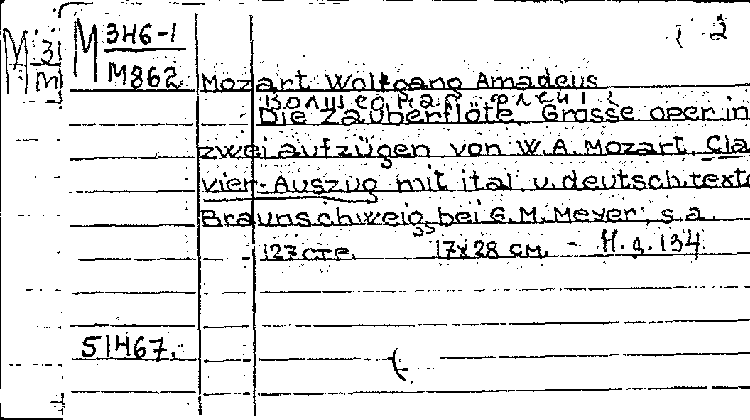 M 3H6-1
M862
2
Mozart Wolfgang Amadeus
Волшебная флейта
Die Zauberflöte. Grosse oper in
zwei aufzügen von W.A. Mozart. Cla
vier-Auszug mit ital. u. deutsch. texte
Braunschweig, bei G.M. Meyer, s.a.
127 стр. 17x28 см. - Н.д. 134.
51467.